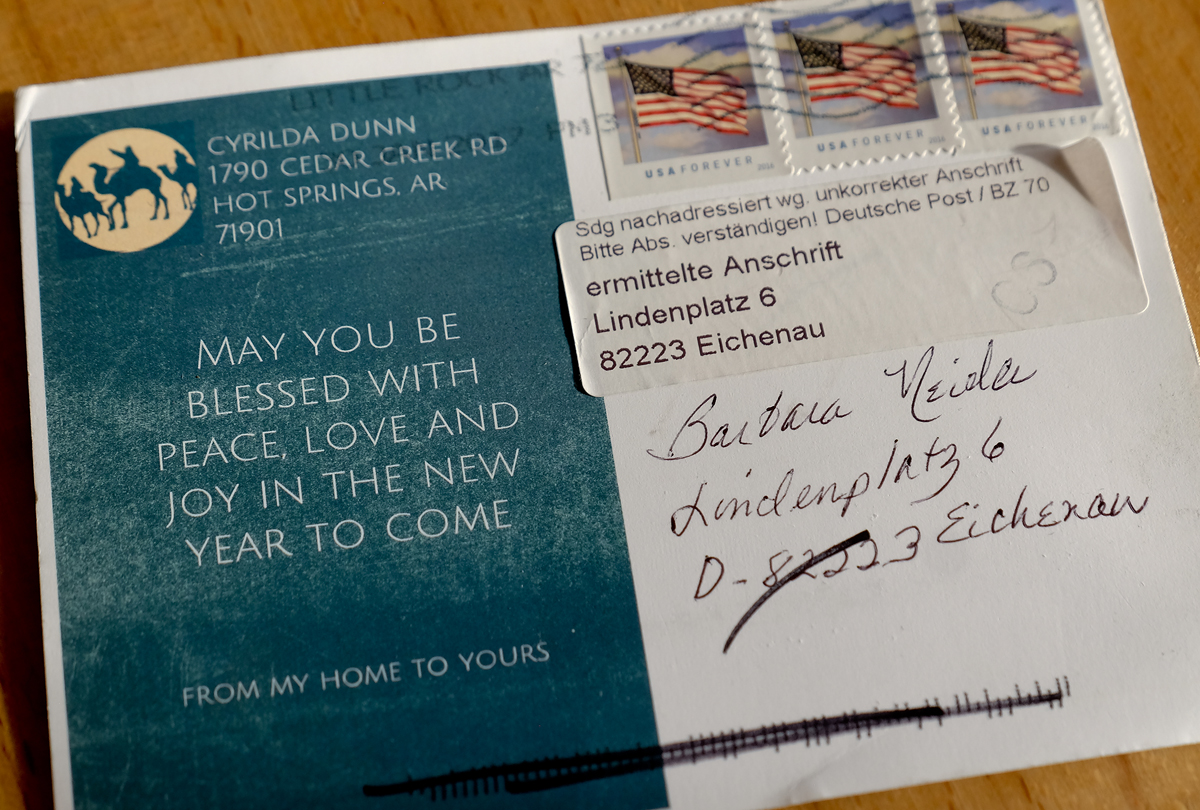 LITTLE ROCK AR
PM 3
CYRILDA DUNN
1790 CEDAR CREEK RD
HOT SPRINGS, AR
71901
USA FOREVER 2016
USA FOREVER 2016
USA FOREVER
Sdg nachadressiert wg. unkorrekter Anschrift
Bitte Abs. verständigen! Deutsche Post / BZ 70
ermittelte Anschrift
Lindenplatz 6
82223 Eichenau
MAY YOU BE
BLESSED WITH
PEACE, LOVE AND
JOY IN THE NEW
YEAR TO COME
FROM MY HOME TO YOURS
Barbara Neida
Lindenplatz 6
D-82223 Eichenau